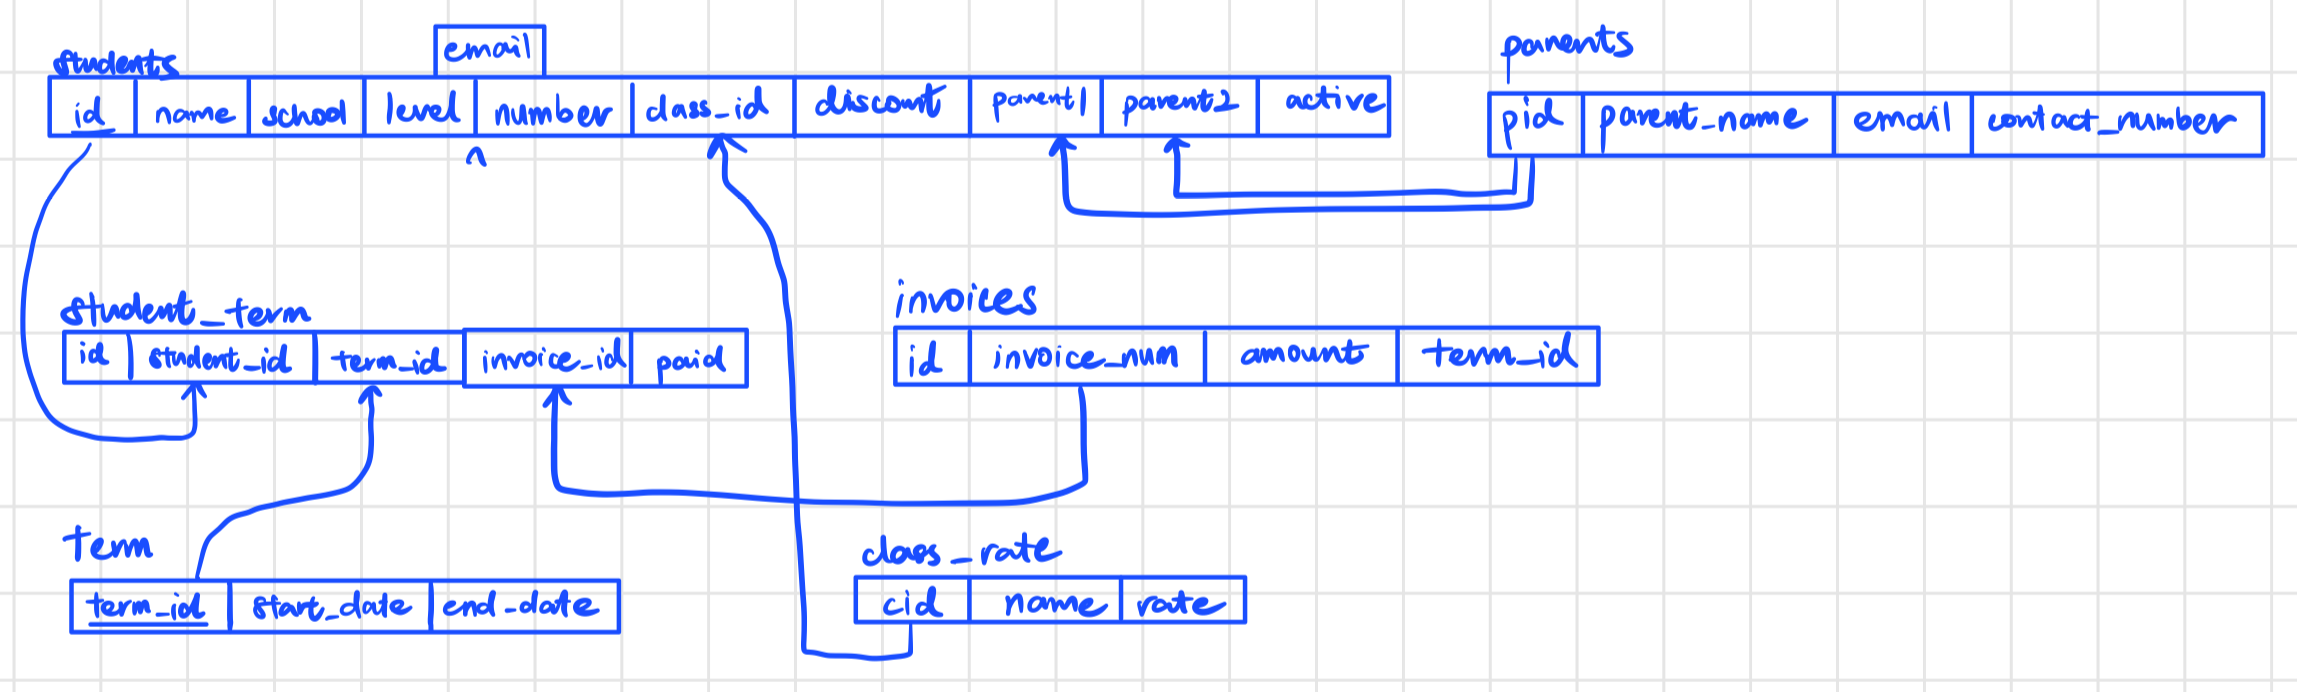 email
students
id name school level number class_id discount parent1 parent2 active
parents
pid parent_name email contact_number
student_term
id student_id term_id invoice_id paid
invoices
id invoice_num amount term_id
term
term_id start_date end_date
class_rate
cid name rate